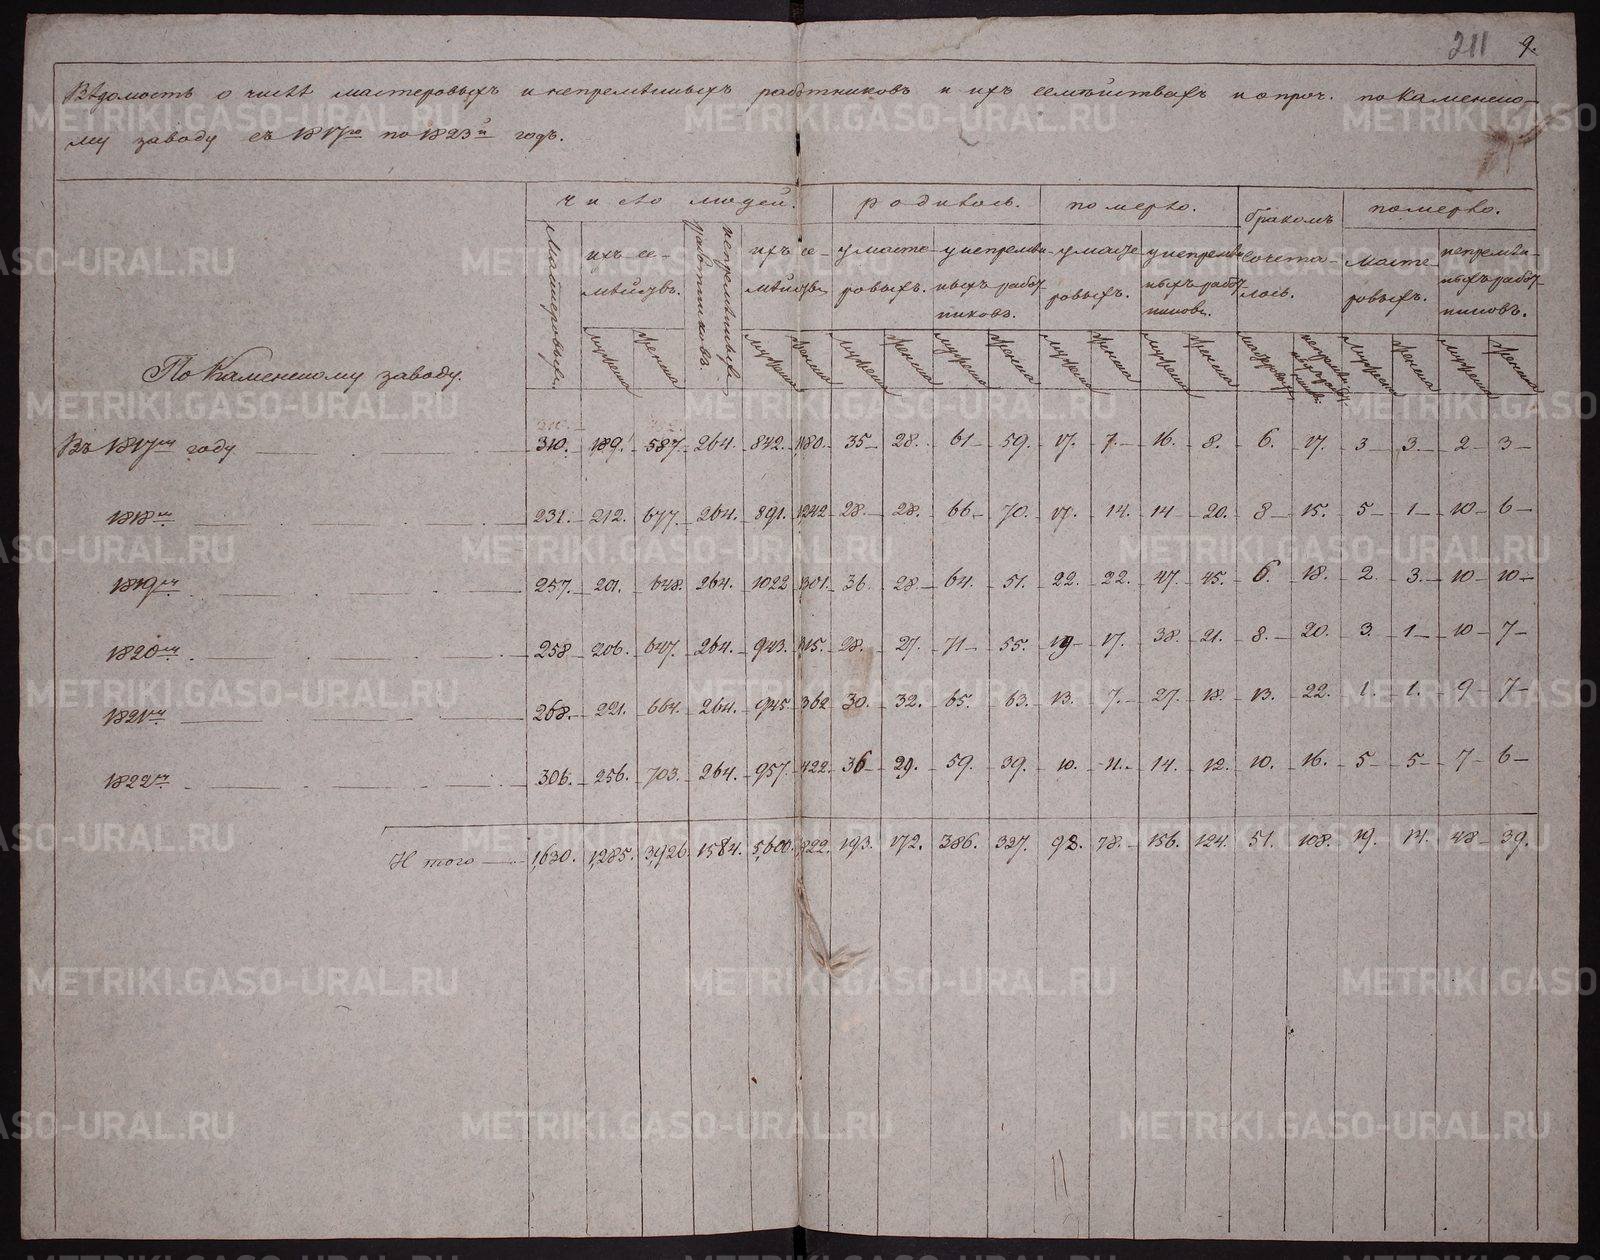 211 9.
Вѣдомость о числѣ мастеровыхъ и непремѣнныхъ работниковъ и ихъ семѣйствахъ и о проч. по Каменско-
му заводу съ 1817го по 1823й годъ.
число людей. родилось. померло. бракомъ сочеталось. померло.
Мастеровыхъ. ихъ семѣйствъ. непремѣнныхъ работниковъ. ихъ семѣйствъ у мастеровыхъ. у непремѣнныхъ работниковъ. у мастеровыхъ. у непремѣнныхъ работниковъ. мастеровыхъ. непремѣнныхъ работниковъ.
мужеска женска мужеска женска мужеска женска мужеска женска мужеска женска мужеска женска мужеска женска мужеска женска
По Каменскому заводу.
Въ 1817мъ году 310. 189. 587. 264. 842. 1180. 35 28. 61 59. 17. 7. 16. 8. 6. 17. 3 3. 2 3
1818мъ 231. 212. 677. 264. 891. 1242 28. 28. 66 70. 17. 14. 14 20. 8 15. 5 1 10 6
1819мъ 257. 201. 648. 264. 1022 1301. 36. 28. 64. 51. 22. 22. 47. 45. 6. 18. 2. 3. 10 10
1820мъ 258 206. 647. 264. 943. 1315. 28. 27. 71 55. 19 17. 38. 21. 8. 20. 3. 1 10 7
1821мъ 268. 221. 664. 264. 945. 1362 30. 32. 65. 63. 13. 7. 27. 18. 13. 22. 1. 1. 9 7
1822мъ 306. 256. 703. 264. 957. 1422. 36 29. 59. 39. 10. 11. 14. 12. 10. 16. 5 5 7 6
Итого 1,630. 1,285. 3,926. 1,584. 5,600. 7,822. 193. 172. 386. 337. 98. 78. 156. 124. 51. 108. 19. 14. 48 39.
METRIKI.GASO-URAL.RU